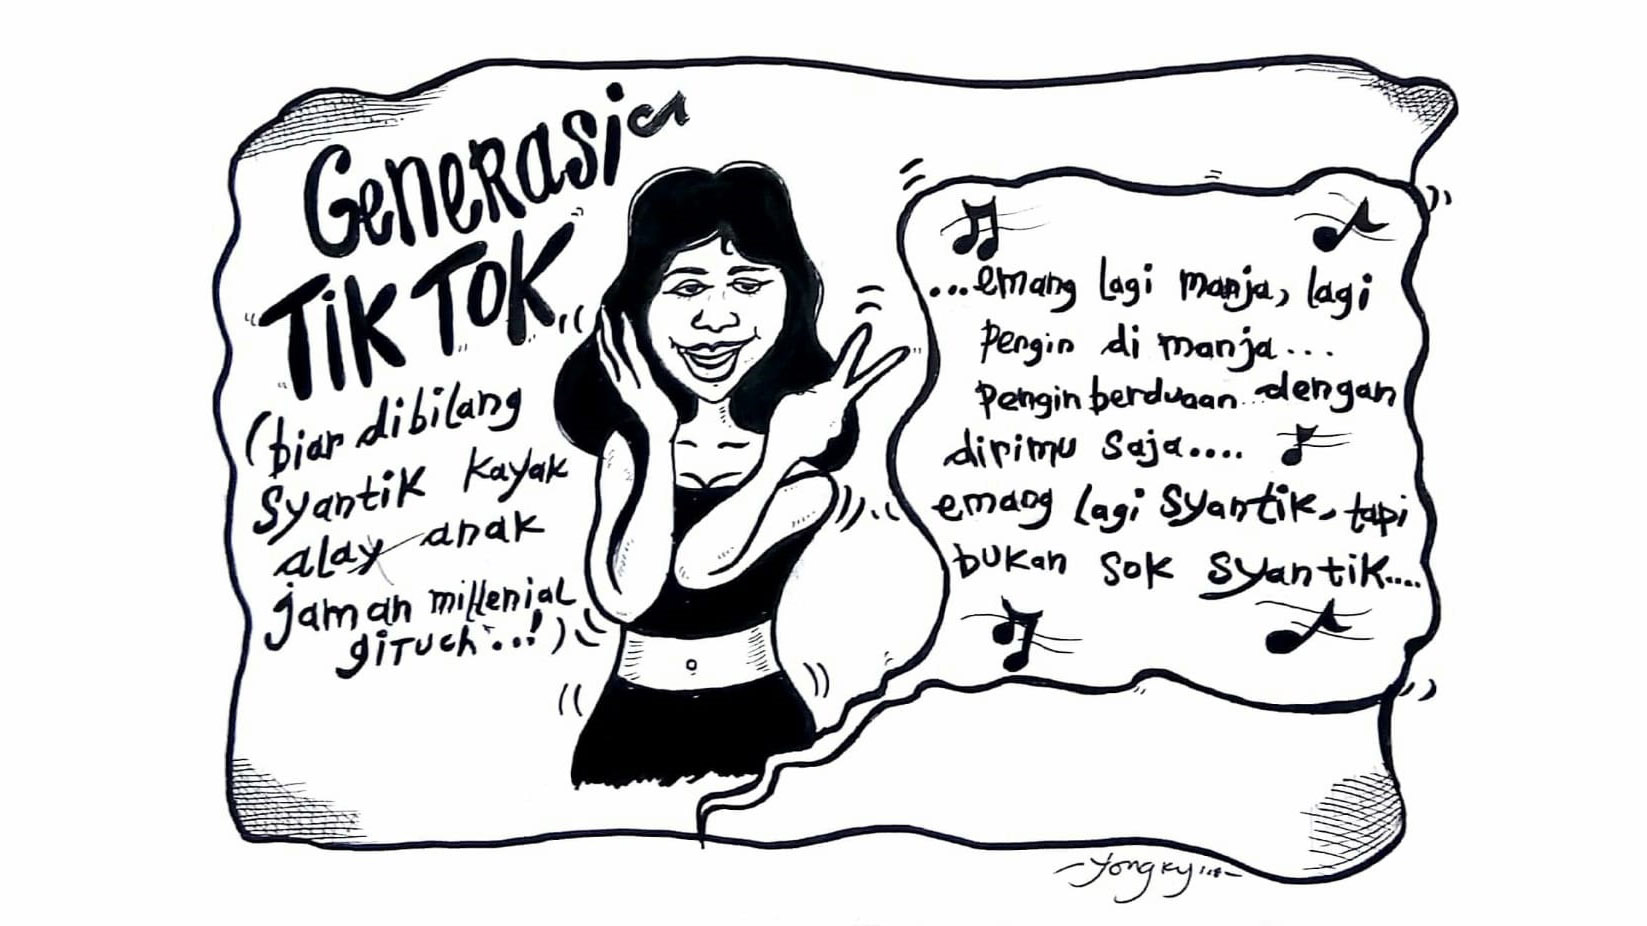 Generasi
TikTok
(biar dibilang
syantik kayak
alay anak
jaman millenial
gituch...!)
...emang lagi manja, lagi
pengin di manja...
penginberduaan..dengan
dirimu saja....
emang lagi syantik, tapi
bukan sok syantik....
-Yongky...-